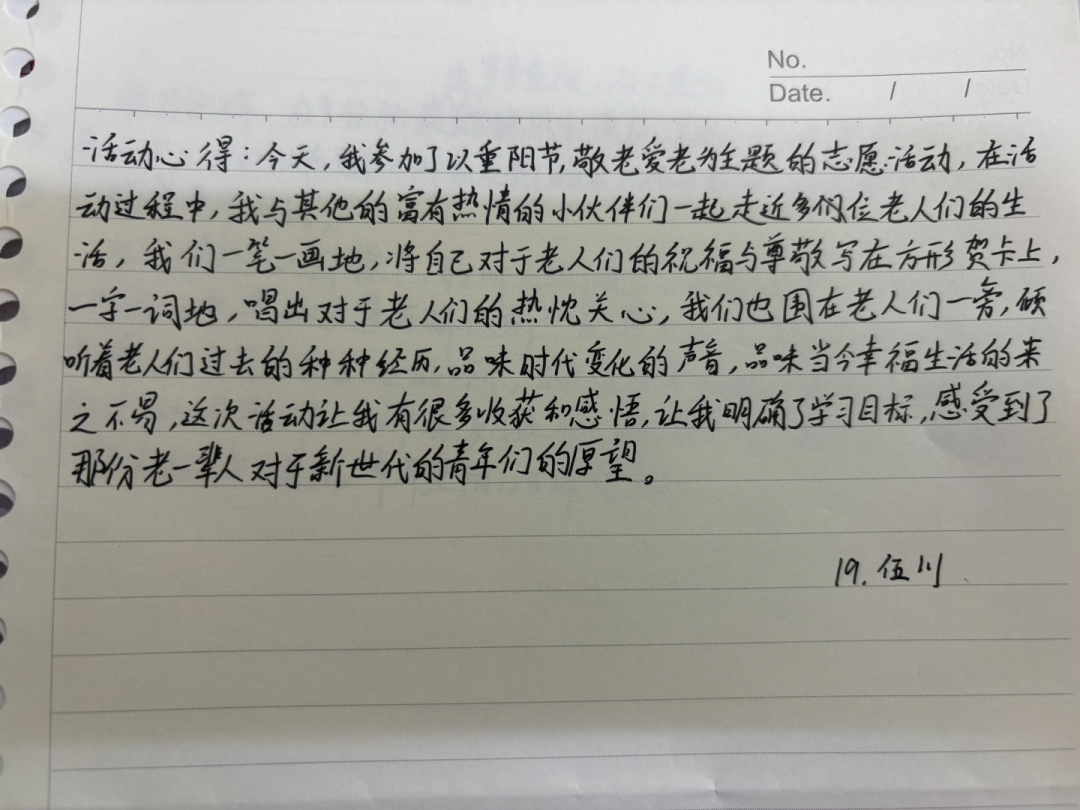 No.
Date. / /
活动心得：今天，我参加了以重阳节，敬老爱老为主题的志愿活动，在活
动过程中，我与其他的富有热情的小伙伴们一起走近多位老人们的生
活，我们一笔一画地，将自己对于老人们的祝福与尊敬写在方形贺卡上，
一字一词地，唱出对于老人们的热忱关心，我们也围在老人们一旁，倾
听着老人们过去的种种经历，品味时代变化的声音，品味当今幸福生活的来
之不易，这次活动让我有很多收获和感悟，让我明确了学习目标，感受到了
那份老一辈人对于新世代的青年们的厚望。
19. 伍川